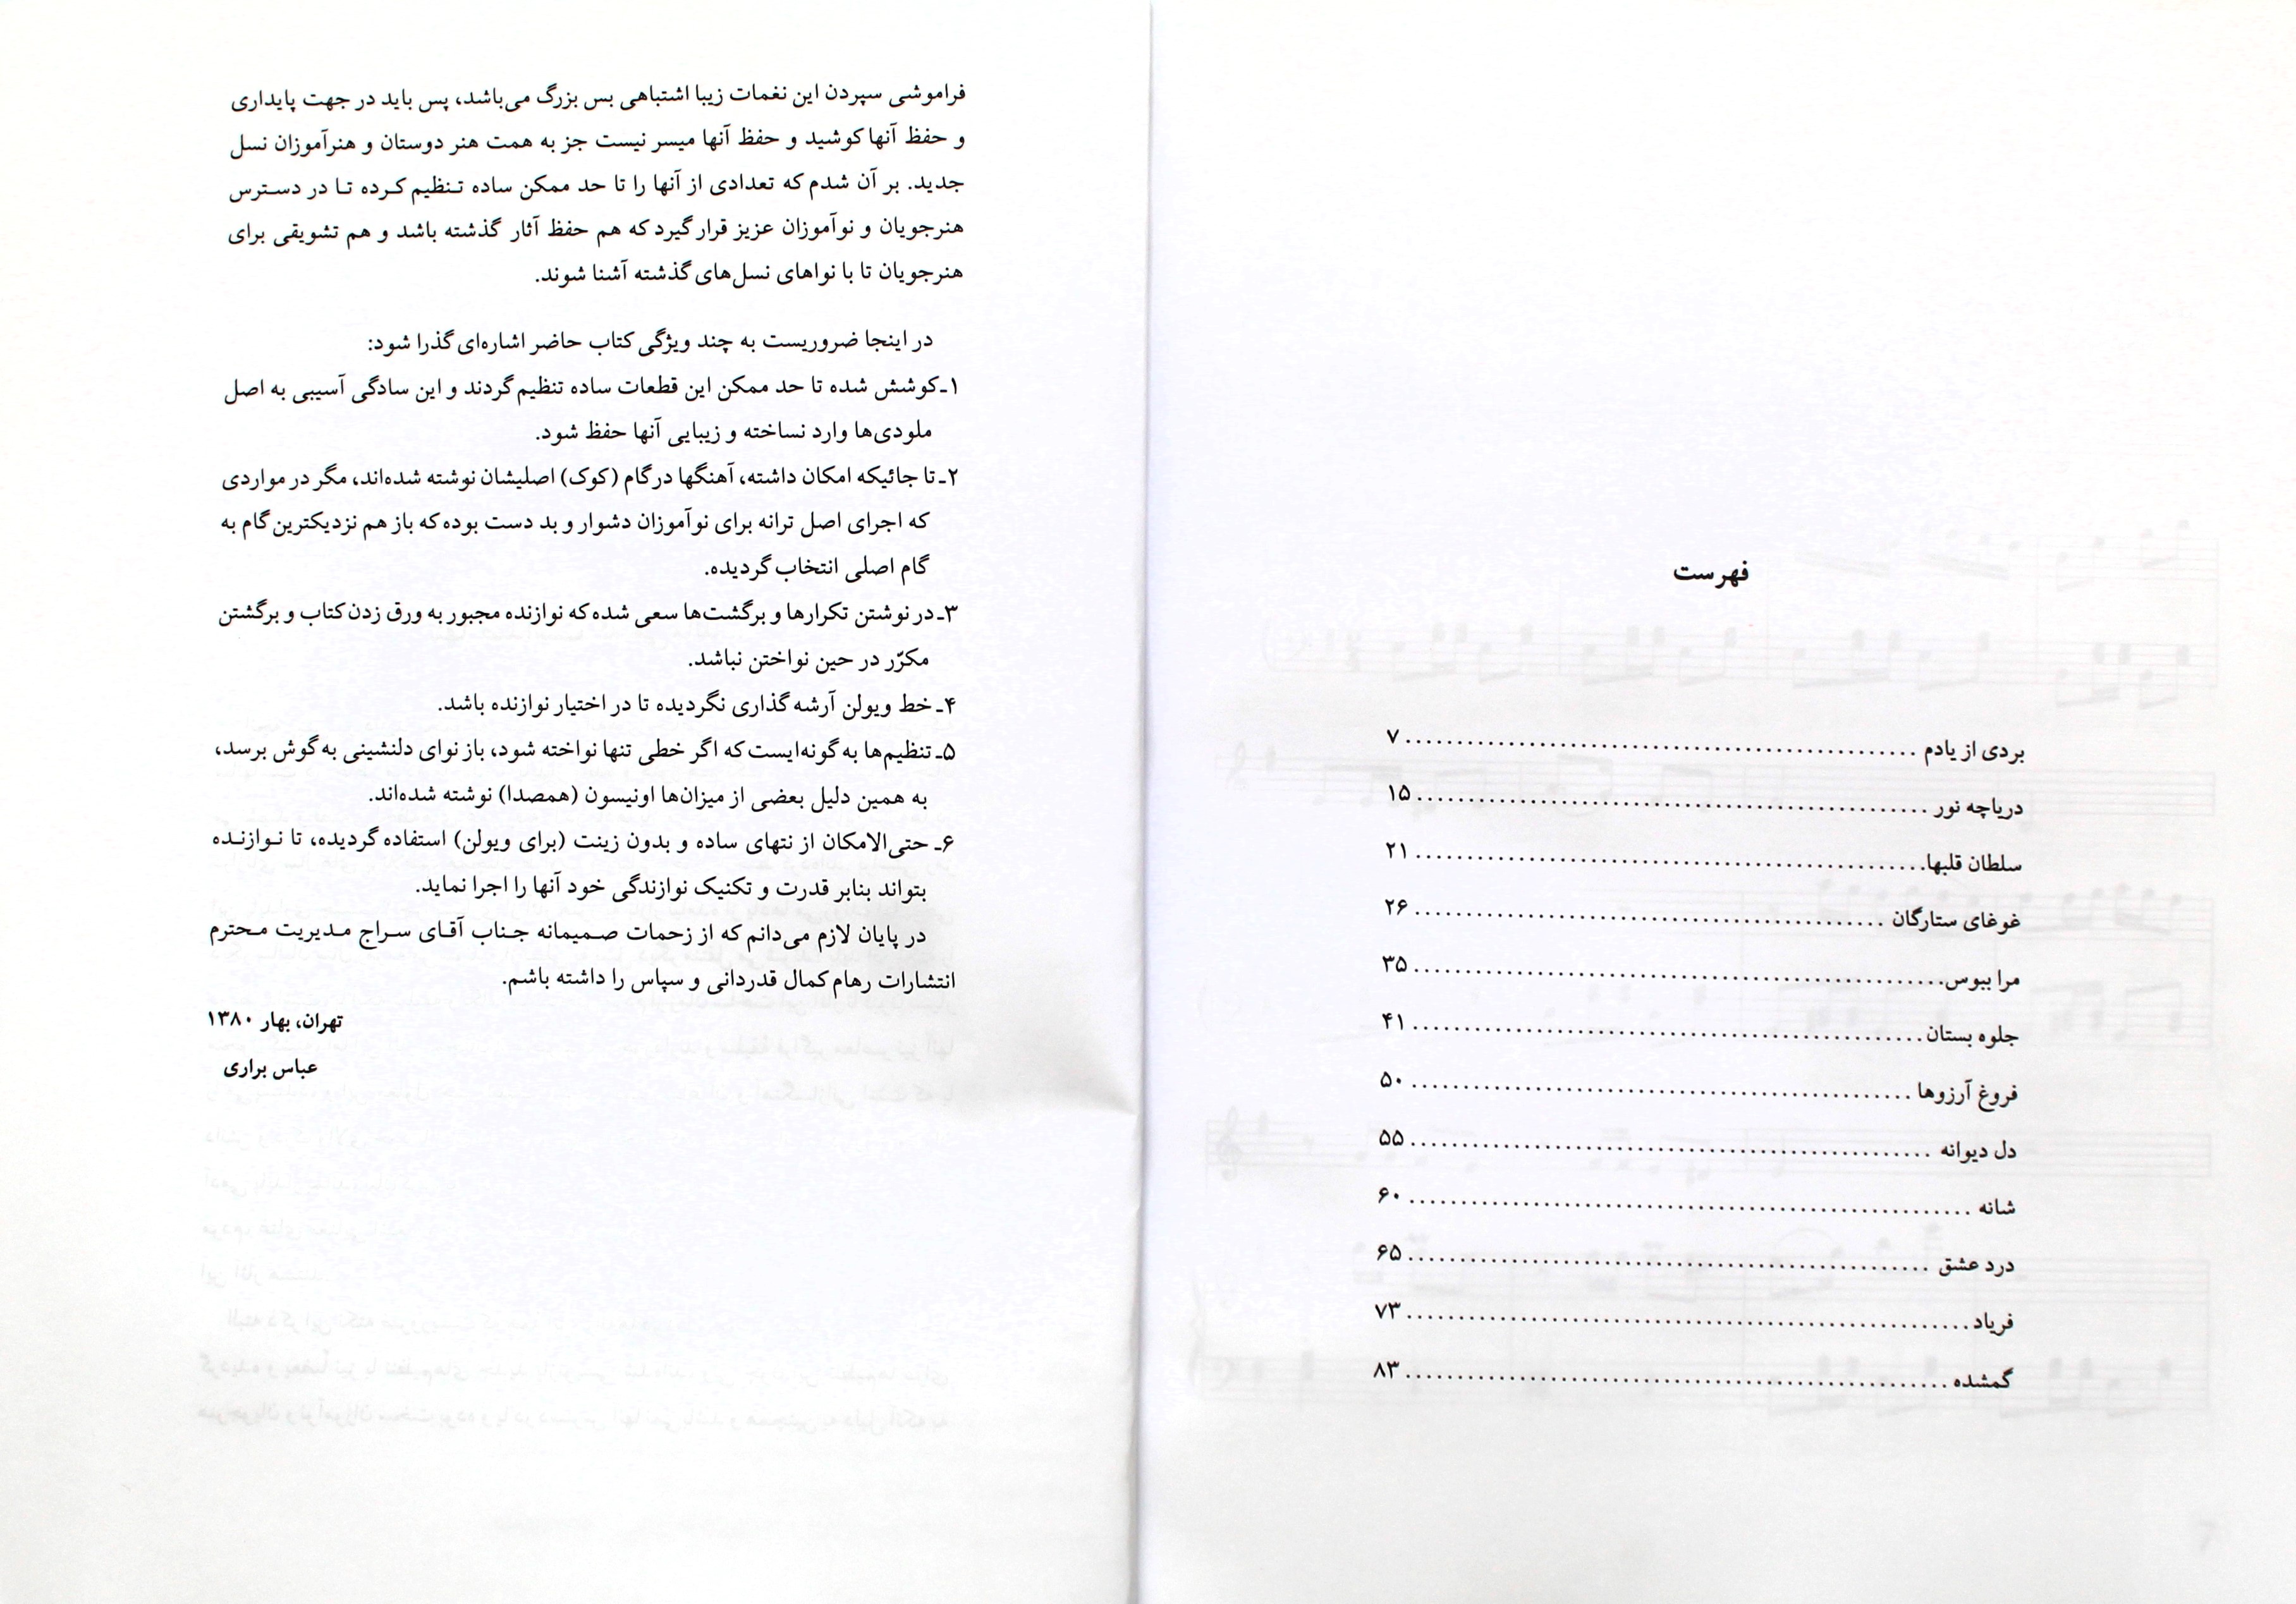 فراموشی سپردن این نغمات زیبا اشتباهی بس بزرگ می‌باشد، پس باید در جهت پایداری
و حفظ آنها کوشید و حفظ آنها میسر نیست جز به همت هنر دوستان و هنرآموزان نسل
جدید. بر آن شدم که تعدادی از آنها را تا حد ممکن ساده تنظیم کرده تا در دسترس
هنرجویان و نوآموزان عزیز قرار گیرد که هم حفظ آثار گذشته باشد و هم تشویقی برای
هنرجویان تا با نواهای نسل‌های گذشته آشنا شوند.
در اینجا ضروریست به چند ویژگی کتاب حاضر اشاره‌ای گذرا شود:
۱ـ کوشش شده تا حد ممکن این قطعات ساده تنظیم گردند و این سادگی آسیبی به اصل
ملودی‌ها وارد نساخته و زیبایی آنها حفظ شود.
۲ـ تا جائیکه امکان داشته، آهنگها در گام (کوک) اصلیشان نوشته شده‌اند، مگر در مواردی
که اجرای اصل ترانه برای نوآموزان دشوار و بد دست بوده که باز هم نزدیکترین گام به
گام اصلی انتخاب گردیده.
۳ـ در نوشتن تکرارها و برگشت‌ها سعی شده که نوازنده مجبور به ورق زدن کتاب و برگشتن
مکرّر در حین نواختن نباشد.
۴ـ خط ویولن آرشه گذاری نگردیده تا در اختیار نوازنده باشد.
۵ـ تنظیم‌ها به گونه‌ایست که اگر خطی تنها نواخته شود، باز نوای دلنشینی به گوش برسد،
به همین دلیل بعضی از میزان‌ها اونیسون (همصدا) نوشته شده‌اند.
۶ـ حتی‌الامکان از نتهای ساده و بدون زینت (برای ویولن) استفاده گردیده، تا نوازنده
بتواند بنابر قدرت و تکنیک نوازندگی خود آنها را اجرا نماید.
در پایان لازم می‌دانم که از زحمات صمیمانه جناب آقای سراج مدیریت محترم
انتشارات رهام کمال قدردانی و سپاس را داشته باشم.
تهران، بهار ۱۳۸۰
عباس براری
فهرست
بردی از یادم ........ ۷
دریاچه نور ........ ۱۵
سلطان قلبها ........ ۲۱
غوغای ستارگان ........ ۲۶
مرا ببوس ........ ۳۵
جلوه بستان ........ ۴۱
فروغ آرزوها ........ ۵۰
دل دیوانه ........ ۵۵
شانه ........ ۶۰
درد عشق ........ ۶۵
فریاد ........ ۷۳
گمشده ........ ۸۳